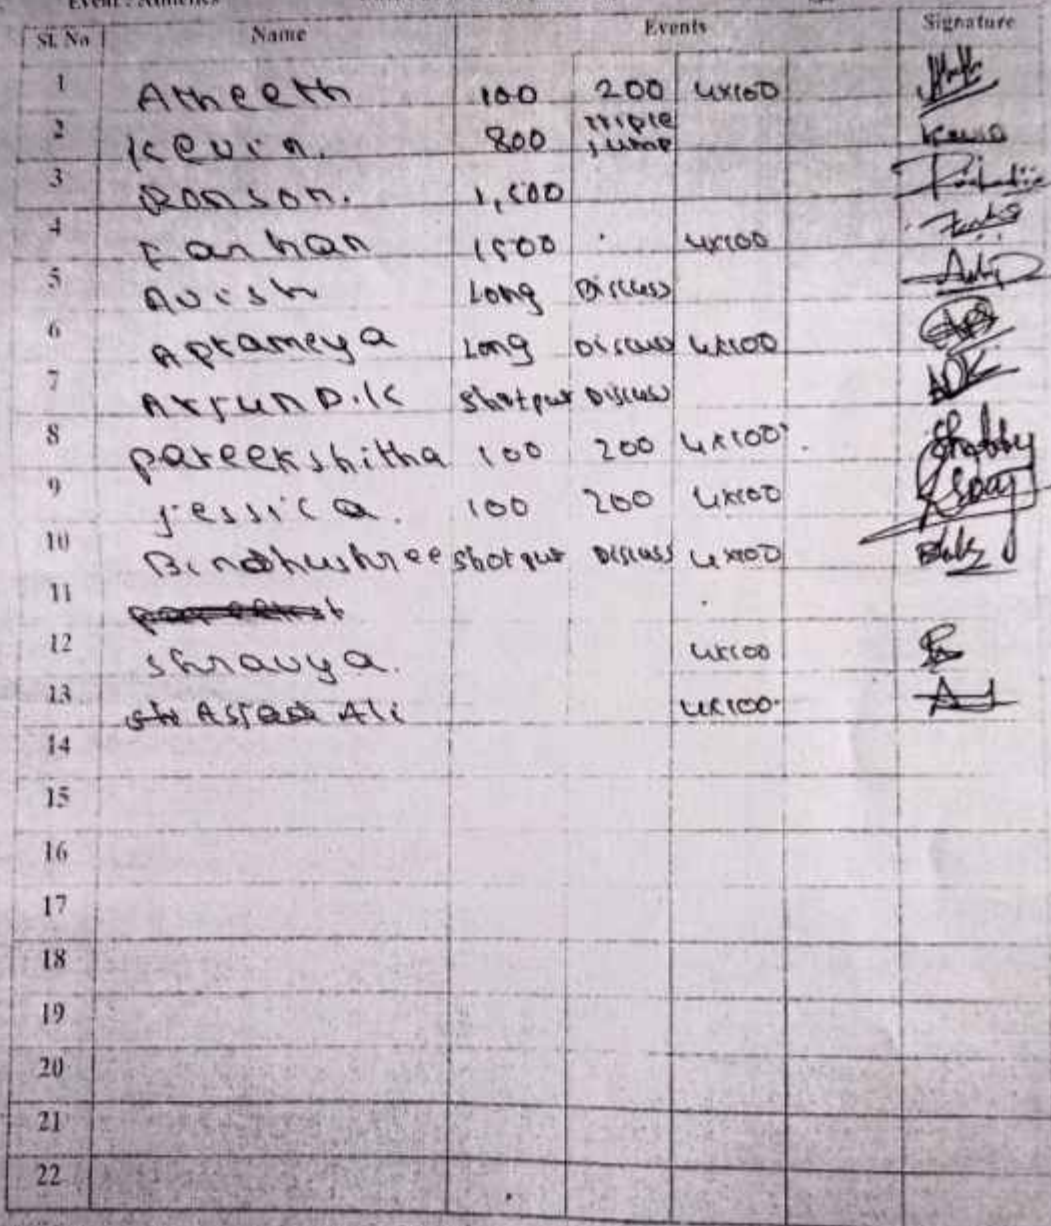 Event : Athletics
Sl. No Name Events Signature
1 Atheeth 100 200 4x100
2 Kevin. 800 Triple Jump Kevin
3 Ronson. 1,500
4 Farhan 1500 4x100
5 Avish Long Discuss
6 Aprameya Long Discuss 4x100
7 Arjun D.K Shotput Discuss ADK
8 Pareekshitha 100 200 4x100
9 Jessica. 100 200 4x100
10 Bindhushree Shotput Discuss 4x100
11
12 Shravya. 4x100
13 Ali 4x100
14
15
16
17
18
19
20
21
22